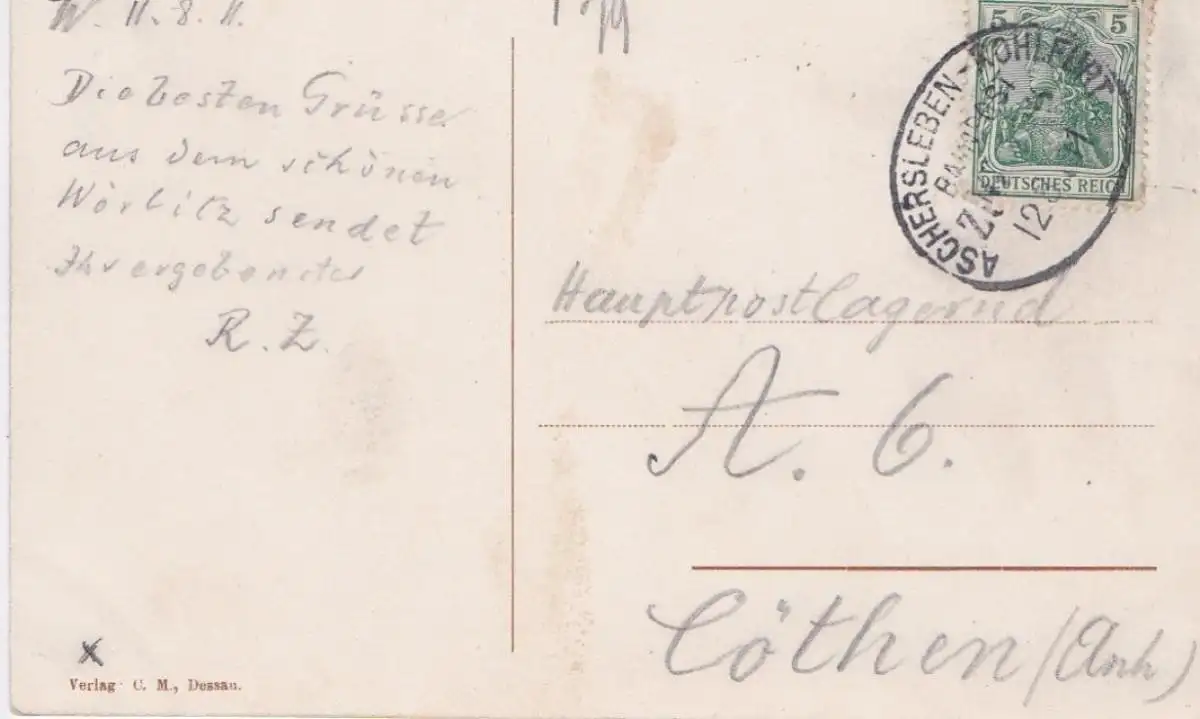 W. 11. 8. 11.
Die besten Grüsse
aus dem schönen
Wörlitz sendet
Ihr ergebenster
R. Z.
Verlag C. M., Dessau.
5 5
DEUTSCHES REICH
ASCHERSLEBEN - KOHLFURT
BAHNPOST
ZUG
12
Hauptpostlagernd
A. 6.
Cöthen (Anh)